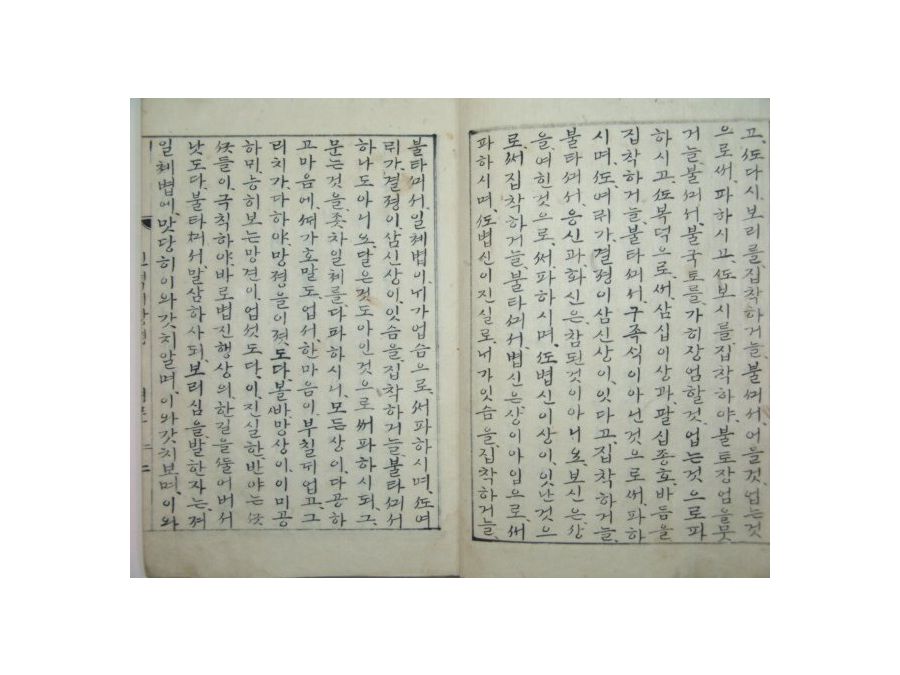 고、ᄯᅩ다시、보리를집착하거늘、불ᄭᅦ서、어들것、업는것
으로써、파하시고、ᄯᅩ보시를、집착하야、불토장엄을뭇
거늘、불ᄭᅦ서、불국토를、가히장엄할것、업는것으로파
하시고、ᄯᅩ복덕으로、써、삼십이상과、팔십종호、바듬을
집착하거늘불타ᄭᅦ서、구족식이아닌것으로써파하
시며、ᄯᅩ、여ᄅᆡ가、결뎡이삼신상이、잇다고、집착하거늘
불타ᄭᅦ서、응신과화신은、참된것이아니오、보신은、상
을、여힌것으로、써파하시며、ᄯᅩ법신이상이、잇난것으
로、써집착하거늘、불타ᄭᅦ서、법신은、상이아입으로、써
파하시며、ᄯᅩ법신이진실로、니가잇슴을、집착하거늘
불타ᄭᅦ서、일체법이、ᄂᆡ가업슴으로、써파하시며、ᄯᅩ여
ᄅᆡ가、결뎡이、삼신상이、잇슴을、집착하거늘、불타ᄭᅦ서
하나도아니오、달은것도아인것으로써파하시되、그
문는것을、좃차일체를、다파하시니、모든상이、다공하
고마음에、ᄶᅢ가호말도、업서、한마음이、부칠ᄃᆡ업고、그
리치가、다하야、망졍을이졋、도다、볼바망상이、이미공
하ᄆᆡ、능히보는망견이、업섯도다、이、진실한반야는
들이、국칙하야、바로법진행상의、한길을ᄯᅮᆯ어버서
낫도다、불타ᄭᅦ서말삼하사되、보리심을발한자는、저
일체법에、맛당히이와갓치알며、이와갓치보며、이와